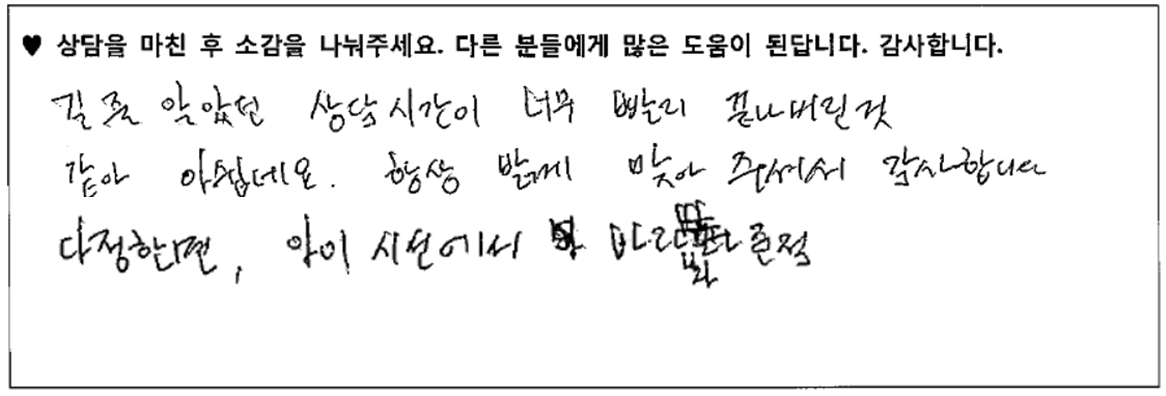 ♥ 상담을 마친 후 소감을 나눠주세요. 다른 분들에게 많은 도움이 된답니다. 감사합니다.
길줄 알았던 상담시간이 너무 빨리 끝나버린것
같아 아쉽네요. 항상 밝게 맞아 주셔서 감사합니다
다정한면, 아이 시선에서 바라 준점